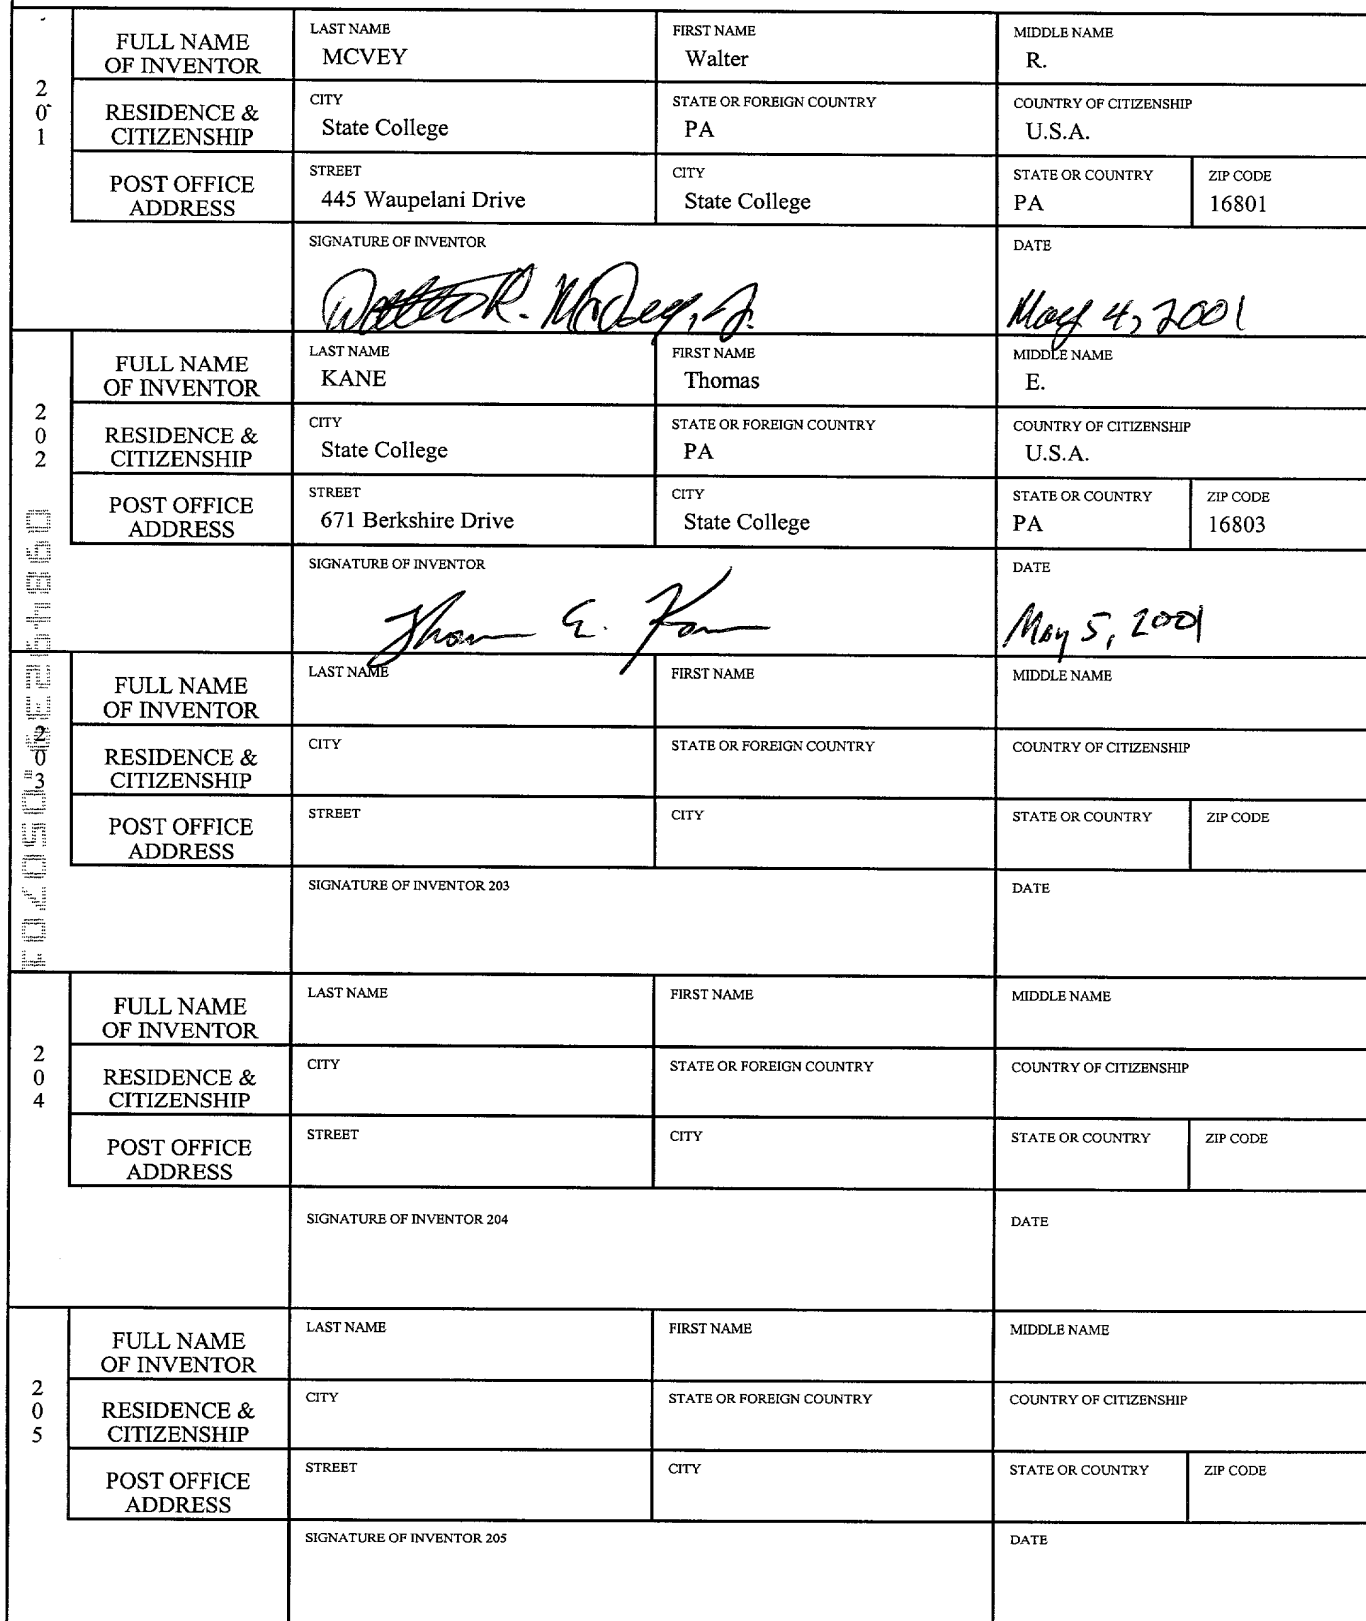 201
FULL NAME OF INVENTOR
LAST NAME MCVEY
FIRST NAME Walter
MIDDLE NAME R.
RESIDENCE & CITIZENSHIP
CITY State College
STATE OR FOREIGN COUNTRY PA
COUNTRY OF CITIZENSHIP U.S.A.
POST OFFICE ADDRESS
STREET 445 Waupelani Drive
CITY State College
STATE OR COUNTRY PA
ZIP CODE 16801
SIGNATURE OF INVENTOR Walter R. McVey, Jr.
DATE May 4, 2001
202
FULL NAME OF INVENTOR
LAST NAME KANE
FIRST NAME Thomas
MIDDLE NAME E.
RESIDENCE & CITIZENSHIP
CITY State College
STATE OR FOREIGN COUNTRY PA
COUNTRY OF CITIZENSHIP U.S.A.
POST OFFICE ADDRESS
STREET 671 Berkshire Drive
CITY State College
STATE OR COUNTRY PA
ZIP CODE 16803
SIGNATURE OF INVENTOR Thomas E. Kane
DATE May 5, 2001
203
FULL NAME OF INVENTOR
LAST NAME
FIRST NAME
MIDDLE NAME
RESIDENCE & CITIZENSHIP
CITY
STATE OR FOREIGN COUNTRY
COUNTRY OF CITIZENSHIP
POST OFFICE ADDRESS
STREET
CITY
STATE OR COUNTRY
ZIP CODE
SIGNATURE OF INVENTOR 203
DATE
204
FULL NAME OF INVENTOR
LAST NAME
FIRST NAME
MIDDLE NAME
RESIDENCE & CITIZENSHIP
CITY
STATE OR FOREIGN COUNTRY
COUNTRY OF CITIZENSHIP
POST OFFICE ADDRESS
STREET
CITY
STATE OR COUNTRY
ZIP CODE
SIGNATURE OF INVENTOR 204
DATE
205
FULL NAME OF INVENTOR
LAST NAME
FIRST NAME
MIDDLE NAME
RESIDENCE & CITIZENSHIP
CITY
STATE OR FOREIGN COUNTRY
COUNTRY OF CITIZENSHIP
POST OFFICE ADDRESS
STREET
CITY
STATE OR COUNTRY
ZIP CODE
SIGNATURE OF INVENTOR 205
DATE